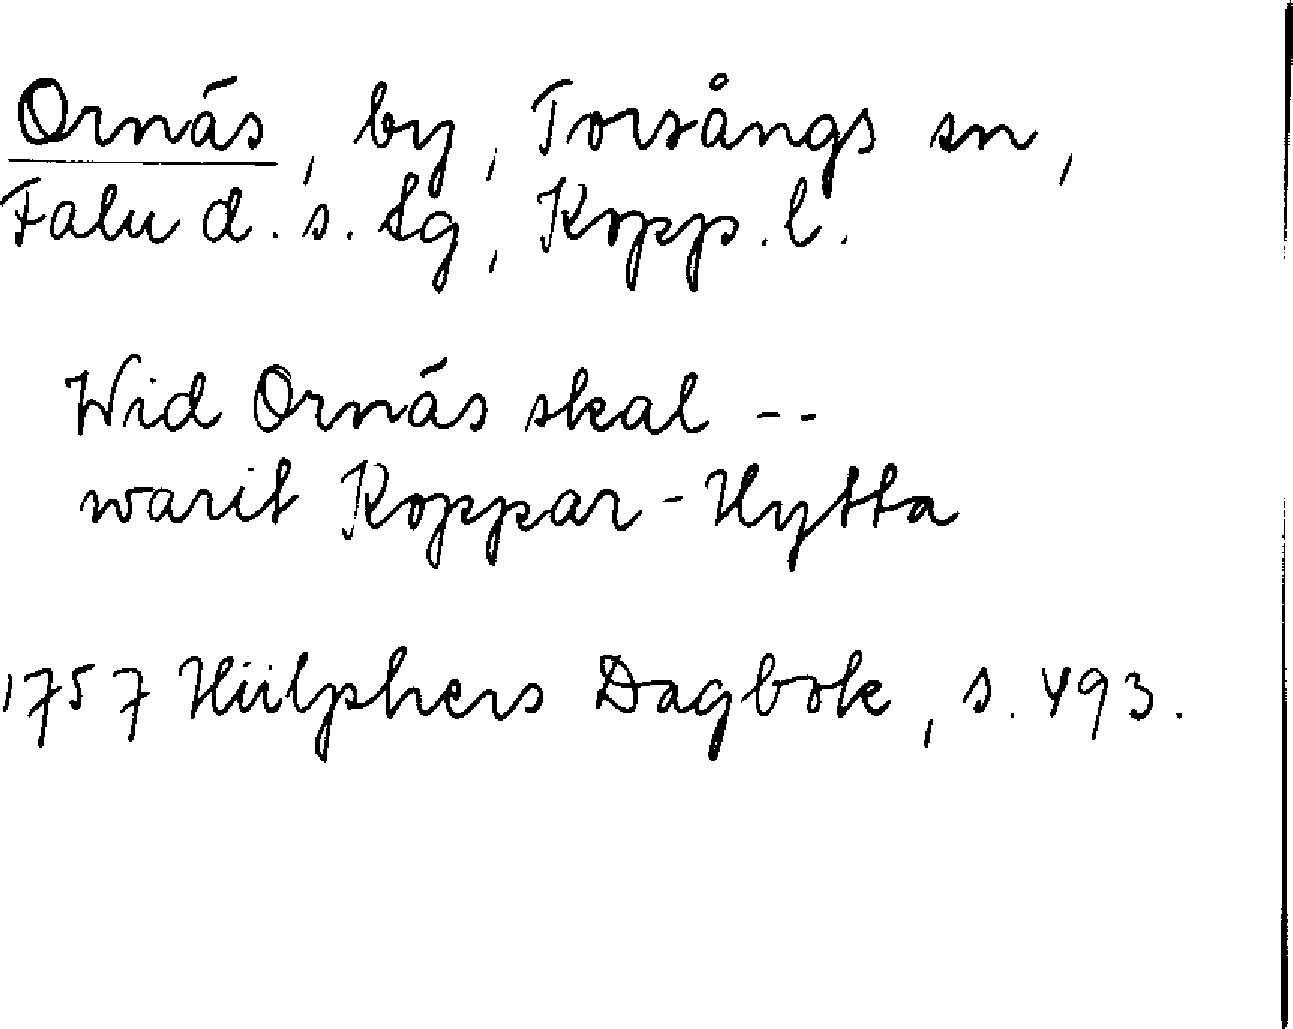 Ornäs, by, Torsångs sn,
Falu d. s. tg, Kopp. l.
Wid Ornäs skal --
warit Koppar-Hytta
1757 Hülphers Dagbok, s. 493.